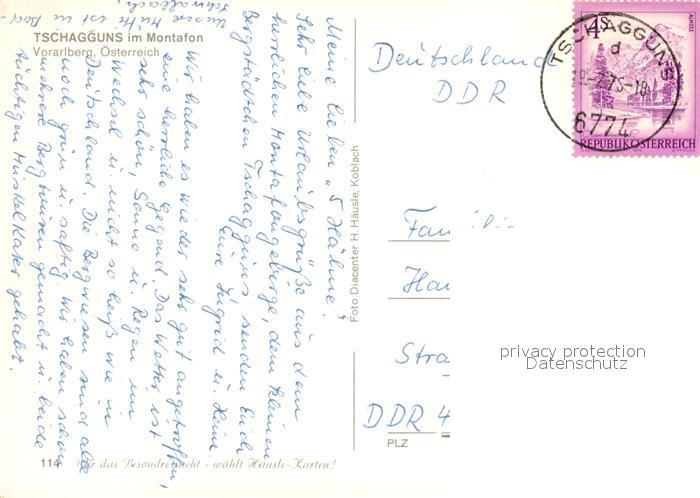 TSCHAGGUNS im Montafon
Vorarlberg, Österreich
Meine lieben „5 Hälme"!
Sehr liebe Urlaubsgrüße aus dem
herrlichen Montafongebirge, dem kleinen
Bergstädtchen Tschagguns senden Euch
Eure Ingrid u. Heinz
Wir haben es wieder sehr gut angetroffen,
eine herrliche Gegend. Das Wetter ist
sehr schön, Sonne u. Regen im
Wechsel u. nicht so heiß wie in
Deutschland. Die Bergwiesen sind alle
noch grün u. saftig. Wir haben schon
mehrere Bergtouren gemacht u. beide
tüchtigen Muskelkater gehabt.
unsere ist in Bad
Schwalbach,
Foto Diacenter H. Häusle, Koblach
Deutschland
DDR
Fam
Hau
Stra
DDR 4
PLZ
114 Für das Besondre steht - wählt Häusle-Karten!
4S
ALMSEE
REPUBLIK ÖSTERREICH
TSCHAGGUNS
d
75-18
6774
privacy protection
Datenschutz